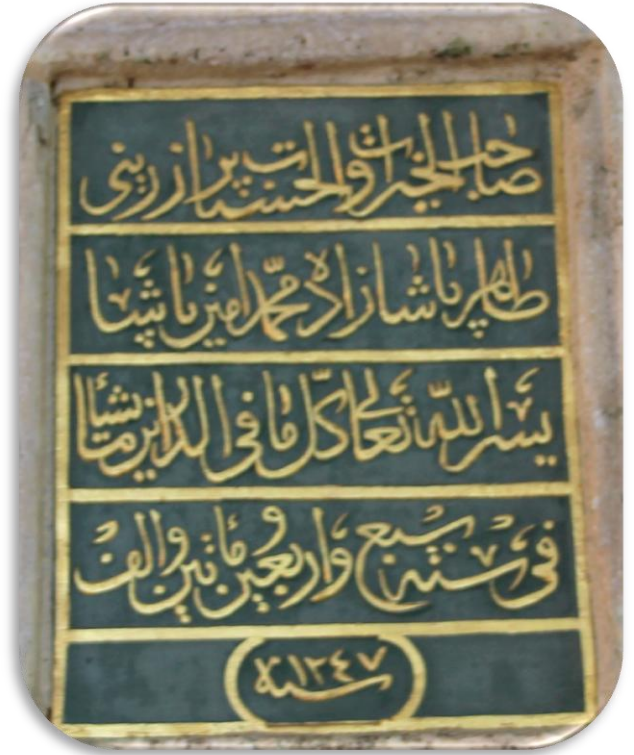 صاحب الخيرات والحسنات پرزرينى
طاهر پاشا زاده محمد امين پاشا
يسر الله تعالى كل ما فى الدارين ما يشأ
فى سنه سبع واربعين و مأتين والف
سنه ١٢٤٧